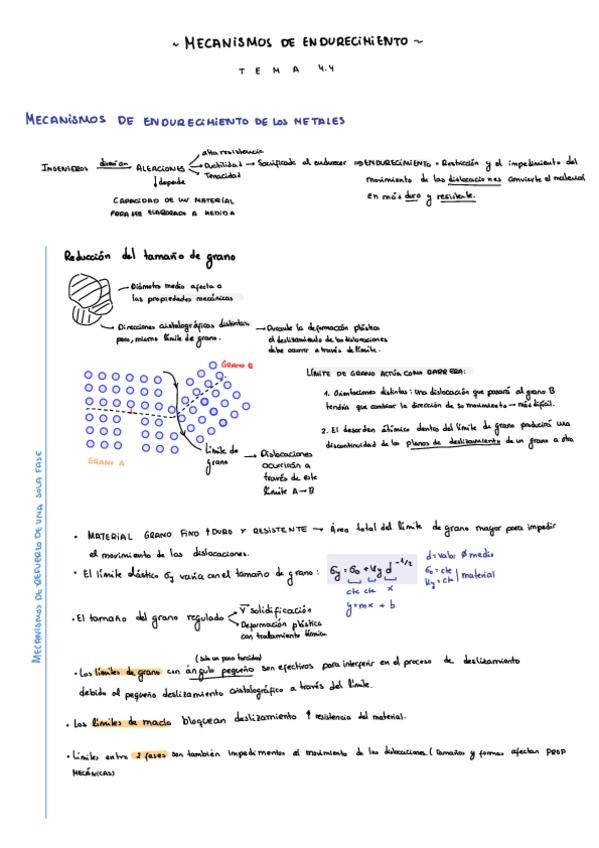 ~ MECANISMOS DE ENDURECIMIENTO ~
TEMA 4.4
MECANISMOS DE ENDURECIMIENTO DE LOS METALES
INGENIEROS diseñan ALEACIONES
alta resistencia
Ductilidad → Sacrificada al endurecer ⇒ ENDURECIMIENTO = Restricción y el impedimento del
Tenacidad
movimiento de las dislocaciones convierte el material
en más duro y resistente.
↓ depende
CAPACIDAD DE UN MATERIAL
PARA SER ELABORADO A MEDIDA
Reducción del tamaño de grano
Diámetro medio afecta a
las propiedades mecánicas
Direcciones cristalográficas distintas
pero, mismo límite de grano.
→ Durante la deformación plástica
el deslizamiento de las dislocaciones
debe ocurrir a través de límite.
GRANO B
GRANO A
Límite de
grano
→ Dislocaciones
ocurrirán a
través de este
límite A→B
LÍMITE DE GRANO ACTÚA COMO BARRERA:
1. Orientaciones distintas: Una dislocación que pasará al grano B
tendría que cambiar la dirección de su movimiento → más difícil.
2. El desorden atómico dentro del límite de grano producirá una
discontinuidad de los planos de deslizamiento de un grano a otro
MECANISMOS DE REFUERZO DE UNA SOLA FASE
• MATERIAL GRANO FINO ↑ DURO Y RESISTENTE → Área total del límite de grano mayor para impedir
el movimiento de las dislocaciones.
• El límite elástico σy varía con el tamaño de grano: σy = σ0 + ky d^-1/2
cte cte x
y = mx + b
d = valor ø medio
σ0 = cte
ky = cte | material
• El tamaño del grano regulado
V solidificación
Deformación plástica
con tratamiento térmico
• Los límites de grano con ángulo pequeño son efectivos para interferir en el proceso de deslizamiento
debido al pequeño deslizamiento cristalográfico a través del límite.
• Los límites de macla bloquean deslizamiento ↑ resistencia del material.
• Límites entre 2 fases son también impedimentos al movimiento de las dislocaciones (Tamaños y formas afectan PROP
MECÁNICAS)